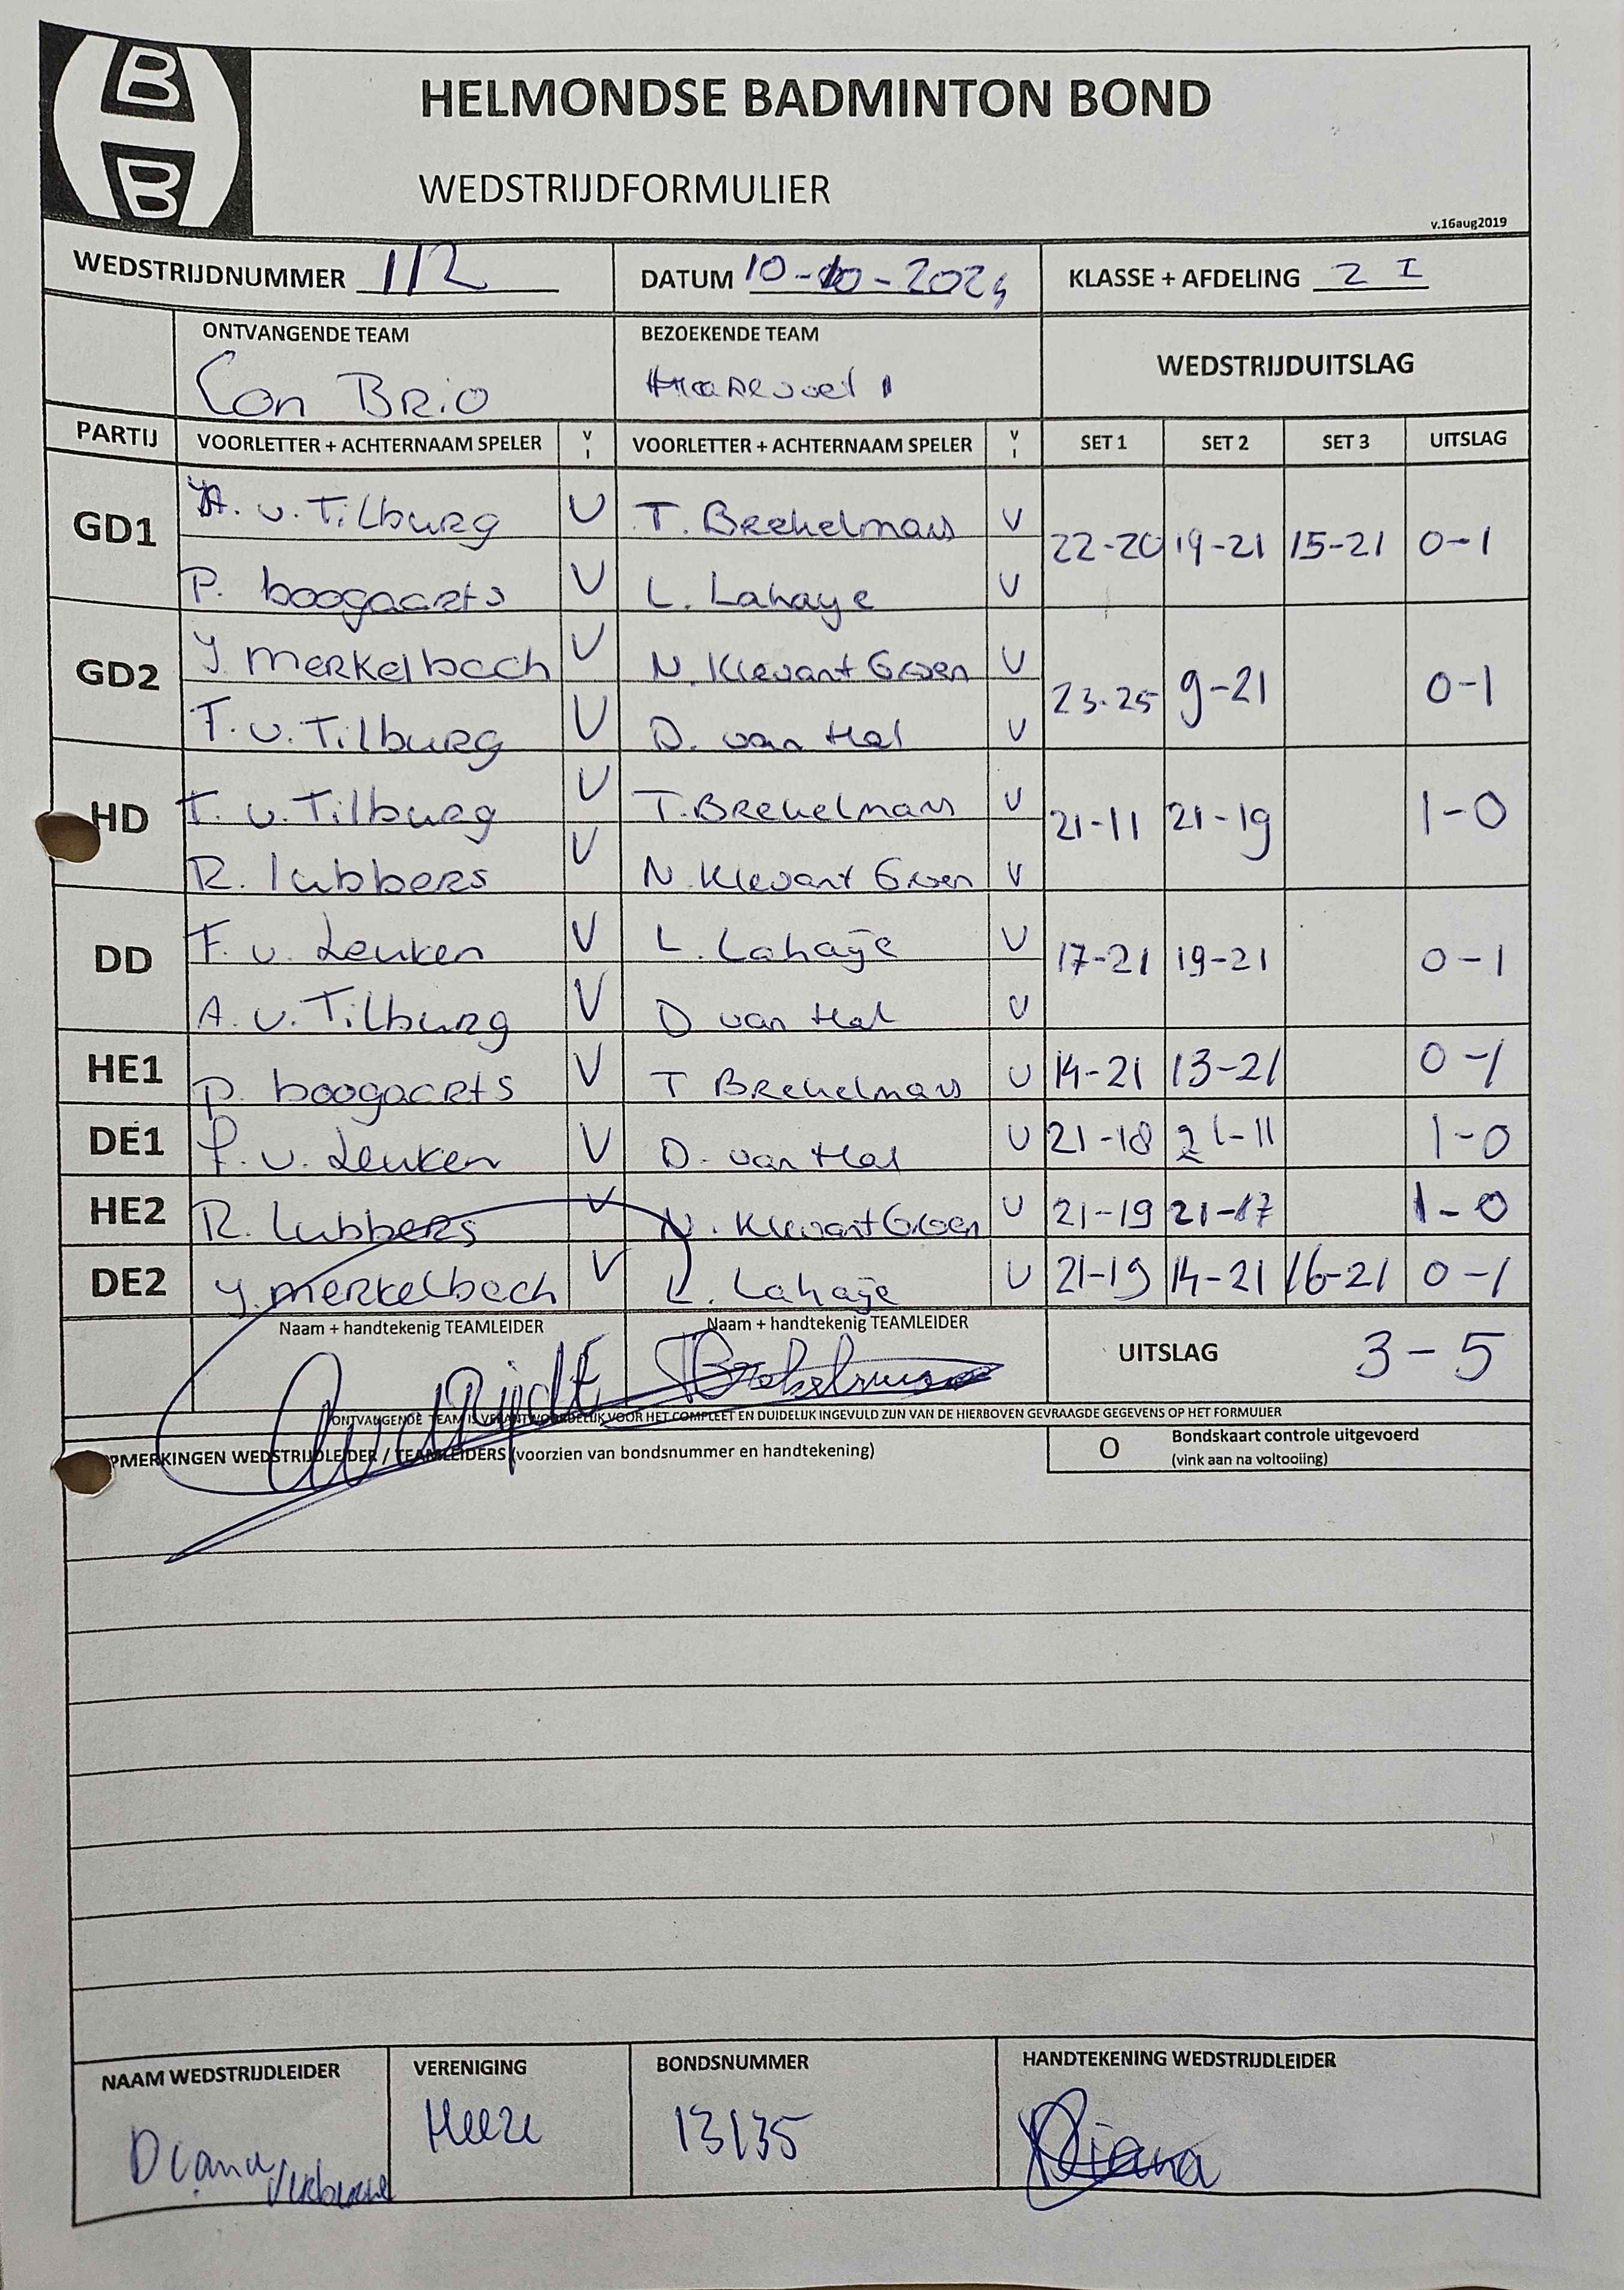 B
B
HELMONDSE BADMINTON BOND
WEDSTRIJDFORMULIER
v.16aug2019
WEDSTRIJDNUMMER 112 DATUM 10-10-2024 KLASSE + AFDELING 2 I
ONTVANGENDE TEAM BEZOEKENDE TEAM WEDSTRIJDUITSLAG
Con BRiO
PARTIJ VOORLETTER + ACHTERNAAM SPELER V I VOORLETTER + ACHTERNAAM SPELER V I SET 1 SET 2 SET 3 UITSLAG
GD1 A. v. Tilburg V T. Brekelmans V 22-20 19-21 15-21 0-1
P. boogaarts V L. Lahaye V
GD2 Y. Merkelbach V N. Klevant Groen V 23-25 9-21 0-1
T. v. Tilburg V D. van Hal V
HD T. v. Tilburg V T. Brekelmans V 21-11 21-19 1-0
R. lubbers V N. Klevant Groen V
DD F. v. Leuken V L. Lahaije V 17-21 19-21 0-1
A. v. Tilburg V D van Hal V
HE1 P. boogaarts V T Brekelmans V 14-21 13-21 0-1
DE1 F. v. Leuken V D. van Hal V 21-18 21-11 1-0
HE2 R. Lubbers V N. Klevant Groen V 21-19 21-17 1-0
DE2 Y. Merkelbach V L. Lahaije V 21-19 14-21 16-21 0-1
Naam + handtekenig TEAMLEIDER Naam + handtekenig TEAMLEIDER UITSLAG 3-5
ONTVANGENDE TEAM IS VERANTWOORDELIJK VOOR HET COMPLEET EN DUIDELIJK INGEVULD ZIJN VAN DE HIERBOVEN GEVRAAGDE GEGEVENS OP HET FORMULIER
PMERKINGEN WEDSTRIJDLEIDER / TEAMLEIDERS (voorzien van bondsnummer en handtekening) O Bondskaart controle uitgevoerd
(vink aan na voltooiing)
NAAM WEDSTRIJDLEIDER VERENIGING BONDSNUMMER HANDTEKENING WEDSTRIJDLEIDER
Diana Heeze 13135 Diana